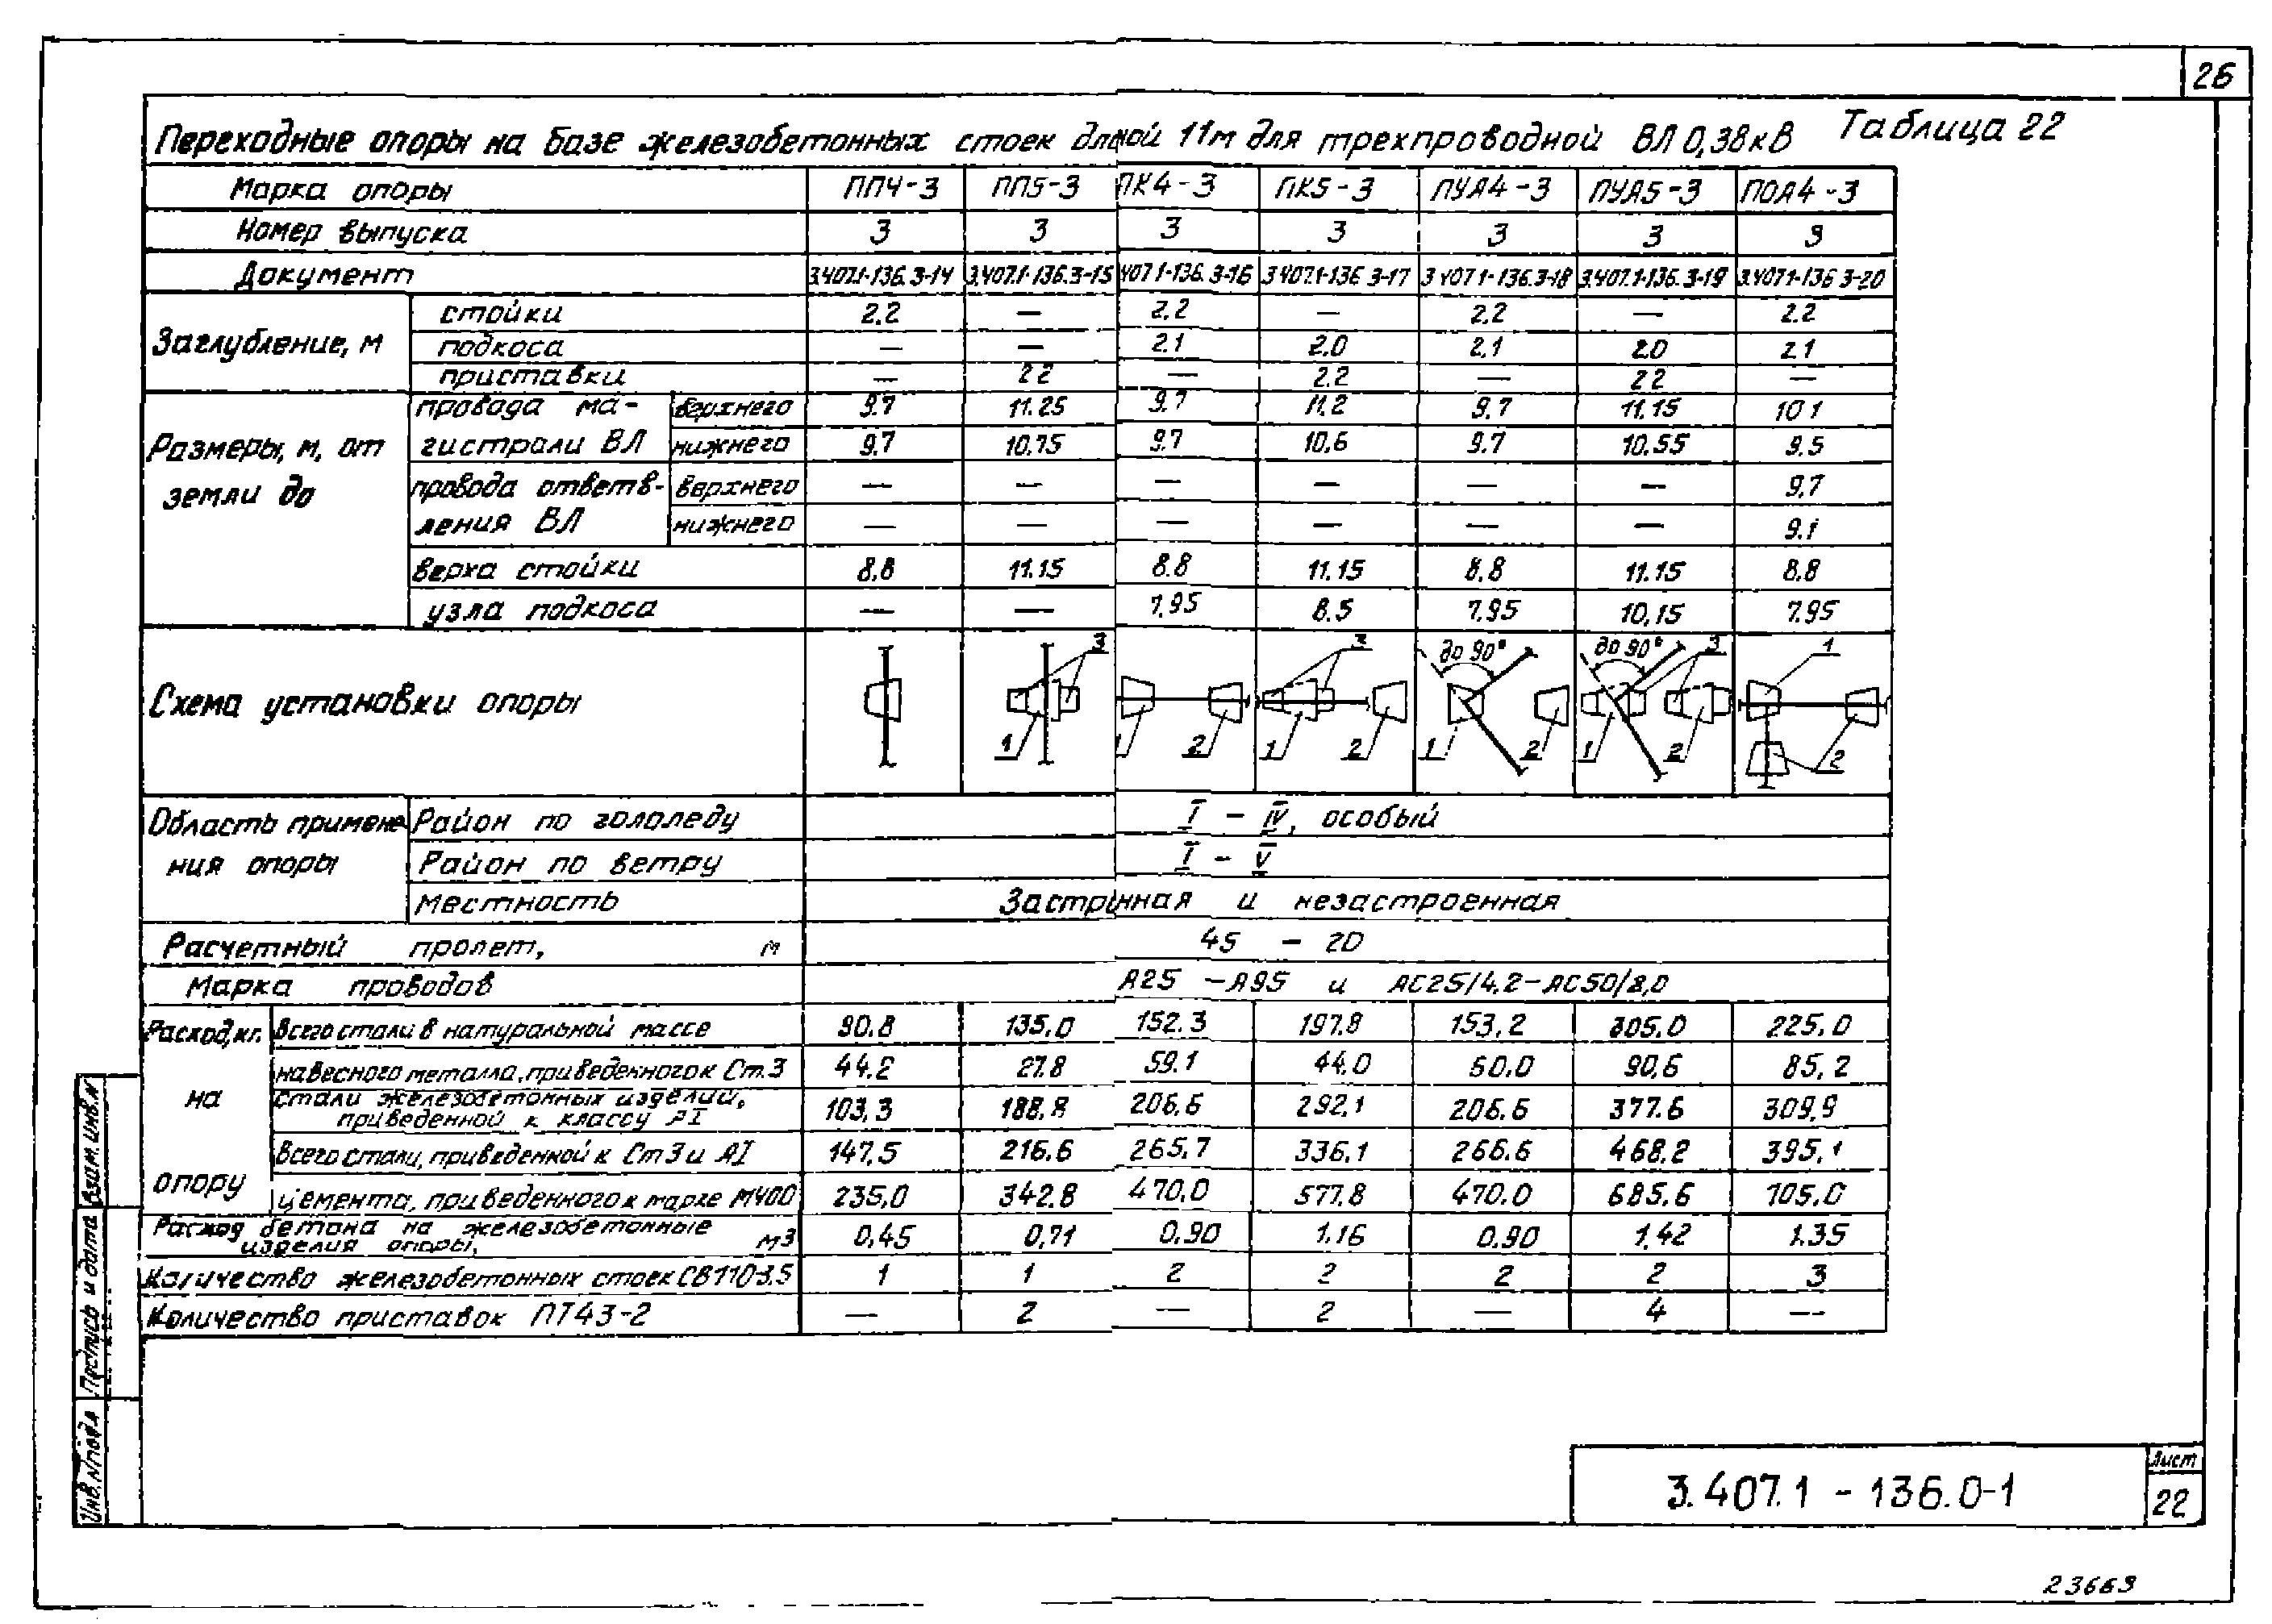 26
Таблица 22
Переходные опоры на базе железобетонных стоек длиной 11м для трехпроводной ВЛ 0,38кВ
Марка опоры ПП4-3 ПП5-3 ПК4-3 ПК5-3 ПУА4-3 ПУА5-3 ПОА4-3
Номер выпуска 3 3 3 3 3 3 3
Документ 3.407.1-136.3-14 3.407.1-136.3-15 407.1-136.3-16 3.407.1-136 3-17 3.407.1-136.3-18 3.407.1-136.3-19 3.407.1-136 3-20
Заглубление, м
стойки 2.2 — 2.2 — 2.2 — 2.2
подкоса — — 2.1 2.0 2,1 2.0 2.1
приставки — 2.2 — 2.2 — 2.2 —
Размеры, м, от земли до
провода магистрали ВЛ
верхнего 9.7 11.25 9.7 11.2 9.7 11.15 10.1
нижнего 9.7 10.75 9.7 10,6 9.7 10.55 9.5
провода ответвления ВЛ
верхнего — — — — — — 9.7
нижнего — — — — — — 9.1
верха стойки 8.8 11.15 8.8 11.15 8.8 11.15 8.8
узла подкоса — — 7.95 8.5 7.95 10,15 7.95
Схема установки опоры
3 1
1 2
3 1 2
до 90° 1 2
до 90° 3 1 2
1 2
Область применения опоры
Район по гололеду I – IV, особый
Район по ветру I – V
Местность Застрнная и незастроенная
Расчетный пролет, м 45 – 20
Марка проводов А25 –А95 и АС25/4.2–АС50/8,0
Расход, кг. на опору
всего стали в натуральной массе 90.8 135.0 152.3 197.8 153,2 305.0 225.0
навесного металла, приведенного к Ст.3 44.2 27.8 59.1 44.0 60.0 90,6 85,2
стали железобетонных изделий, приведенной к классу АI 103,3 188.8 206.6 292,1 206.6 377.6 309,9
Всего стали, приведенной к Ст3 и АI 147,5 216.6 265,7 336,1 266.6 468.2 395,1
цемента, приведенного к марке М400 235,0 342.8 470,0 577.8 470.0 685.6 705.0
Расход бетона на железобетонные изделия опоры, м3 0,45 0,71 0,90 1.16 0.90 1,42 1.35
Количество железобетонных стоек СВ110-3.5 1 1 2 2 2 2 3
Количество приставок ПТ43-2 — 2 — 2 — 4 —
Взам. инв. №
Подпись и дата
Инв. № подл
3.407.1 - 136.0-1
Лист
22
23669